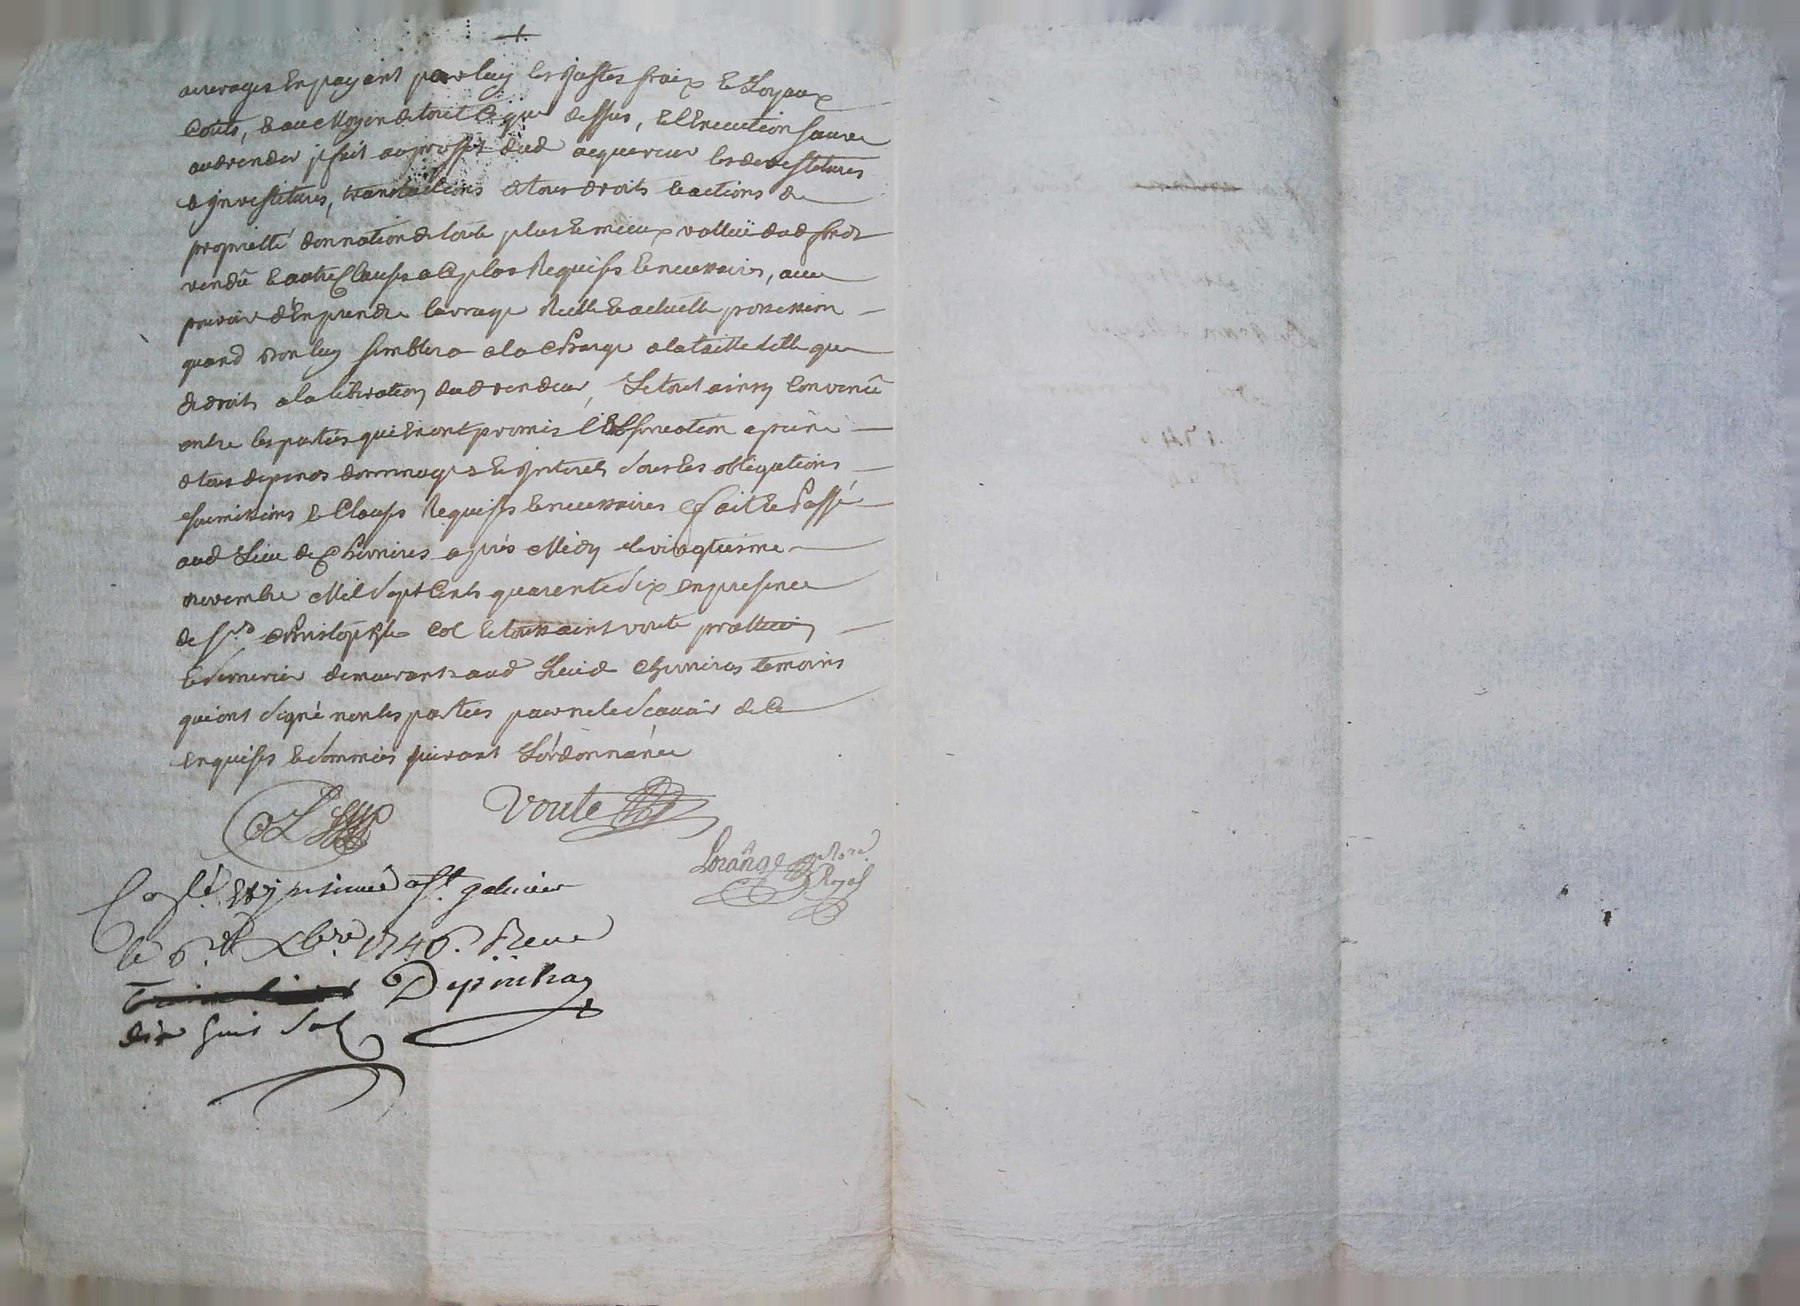 ouvrages en payant par luy les justes fraix & Loyaux
Couts, & au Moyen de tout Ce que dessus, & l'Execution sauve
aud vendeur fait au proffit dud acquereur les devestitures
& jnvestitures, translations & tous droits & actions de
proprietté donnation de toute plus & mieux vallue dud fonds
vendû & autres Clauses a Ce plus Requises & necessaires, avec
pouvoir d'En prendre la vraye Reelle & actuelle possession
quand Bon luy semblera a la Charge a la taille telle que
de droit, a la liberation dud vendeur, Le tout ainsy Convenû
entre les parties qui En ont promis l'observation a peine
de tous depens dommages & jnterets sous les obligations
soumissions & Clauses Requises & necessaires fait & Passé
aud Lieu de Chemires après Midy le vingtiesme
novembre Mil Sept Cents quarente Six en presence
de Srs Christophle Col & toussaint voute praticien
le dernier demeurant aud Lieu de Chemires temoins
qui ont signé non les parties pour ne le scavoir de Ce
enquises & sommées suivant L'ordonnance
Col Voute
Lorange notre Royal
Conlé & jnsinué a St galmier
le 6e Xbre 1746. Receu
Depinhac
dix huit sols